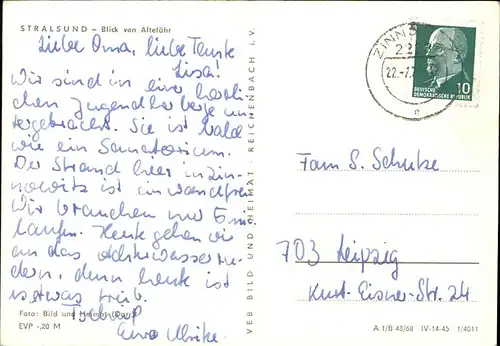 STRALSUND – Blick von Altefähr
Liebe Oma, liebe Tante
Lisa!
Wir sind in einer herrli-
chen Jugendherberge un-
tergebracht. Sie ist bald
wie ein Sanatorium.
Der Strand hier in Zin-
nowitz ist einwandfrei
Wir brauchen nur 5 min.
laufen. Heute gehen wir
an das Achterwasser ru-
dern, denn heute ist
es etwas trüb.
Eure Ulrike.
Foto: Bild und Heimat
EVP -,20 M
VEB BILD UND HEIMAT REICHENBACH i. V.
ZINN
22.-7.7
DEUTSCHE
DEMOKRATISCHE REPUBLIK
10
Fam S. Schulze
703 Leipzig
Kurt-Eisner-Str. 24
A 1/B 48/68 IV-14-45 1/4011